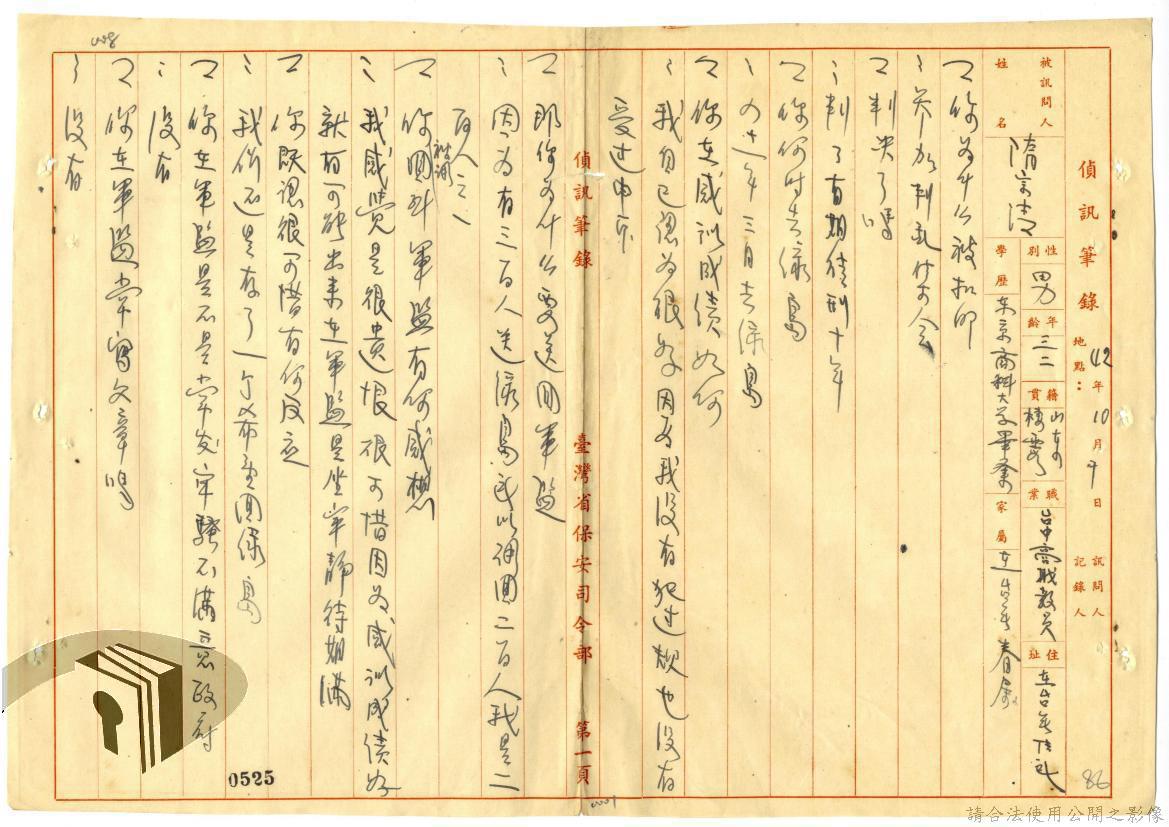 偵訊筆錄 42年10月 日 訊問人
地點： 記錄人
被訊問人姓名 隋 性別 男 年齡 三二 籍貫 山東棲霞 職業 台中商職教員 住址 在台無住址
學歷 東京商科大學畢業 家屬 在台無眷屬
你為什么被扣的
參加判乱份子会
判決了嗎
判了有期徒刑十年
你何时去綠島
四十年三月去綠島
你在感訓成績如何
我自己認為很好因為我沒有犯过規也沒有
受过申斥
那你為什么要送回軍監
因為有三百人送綠島所以調回二百人我是二
百人之一
你被調回到軍監有何感想
我感覺是很遺恨很可惜因為感訓成績好
就有可能出來在軍監是坐牢靜待期滿
你既認很可惜有何反应
我仍还是存了一个希望回綠島
你在軍監是不是常发牢騷不滿意政府
沒有
你在軍監常寫文章嗎
沒有
偵訊筆錄
臺灣省保安司令部
第一頁
0525
86
請合法使用公開之影像